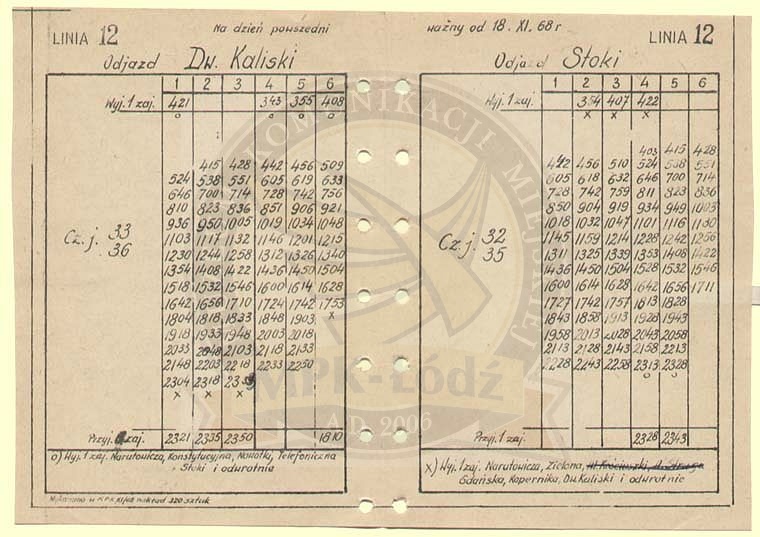 LINIA 12
Na dzień powszedni
Odjazd Dw. Kaliski
1 2 3 4 5 6
Wyj. 1 zaj. 421 343 355 408
o o o
415 428 442 456 509
524 538 551 605 619 633
646 700 714 728 742 756
810 823 836 851 906 921
936 950 1005 1019 1034 1048
1103 1117 1132 1146 1201 1215
1230 1244 1258 1312 1326 1340
1354 1408 1422 1436 1450 1504
1518 1532 1546 1600 1614 1628
1642 1656 1710 1724 1742 1753
1804 1818 1833 1848 1903 x
1918 1933 1948 2003 2018
2033 2048 2103 2118 2133
2148 2203 2218 2233 2250
2304 2318
x x x
Cz. j. 33
36
Przyj. zaj. 2321 2335 2350 1810
o) Wyj. 1 zaj. Narutowicza, Konstytucyjna, Nowotki, Telefoniczna
Stoki i odwrotnie
Wykonano w MPK XI/68 nakład 320 sztuk
ważny od 18. XI. 68 r
LINIA 12
Odjazd Stoki
1 2 3 4 5 6
Wyj. 1 zaj. 354 407 422
x x x
403 415 428
442 456 510 524 538 551
605 618 632 646 700 714
728 742 759 811 823 836
850 904 919 934 949 1003
1018 1032 1047 1101 1116 1130
1145 1159 1214 1228 1242 1256
1311 1325 1339 1353 1408 1422
1436 1450 1504 1528 1532 1546
1600 1614 1628 1642 1656 1711
1727 1742 1757 1813 1828
1843 1858 1913 1928 1943
1958 2013 2028 2043 2058
2113 2128 2143 2158 2213
2228 2243 2258 2313 2328
o o
Cz. j. 32
35
Przyj. 1 zaj. 2328 2343
x) Wyj. 1 zaj. Narutowicza, Zielona,
Gdańska, Kopernika, Dw. Kaliski i odwrotnie
KOMUNIKACJI MIEJSKIEJ
MPK-Łódź
A.D. 2006